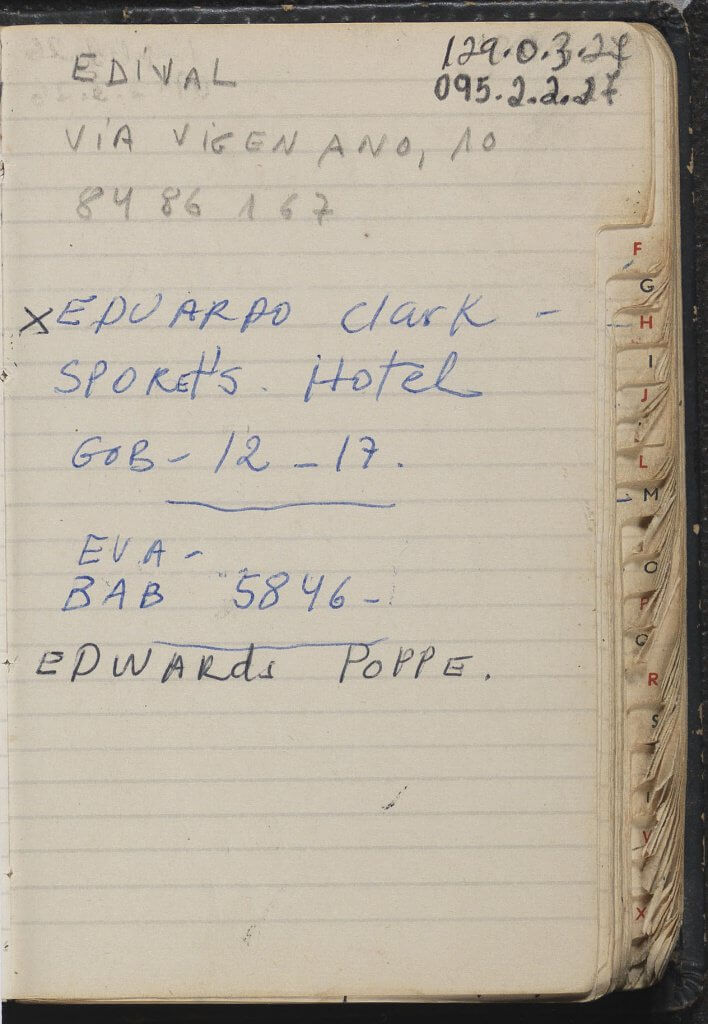 129.0.3.27
095.2.2.27
EDIVAL
VIA VIGENANO, 10
8486167
X EDUARDO Clark -
SPORet's. Hotel
GOB - 12 - 17.
EVA -
BAB 5846 -
EDWARds POPPE.
F
G
H
I
J
L
M
O
P
Q
R
S
T
V
X